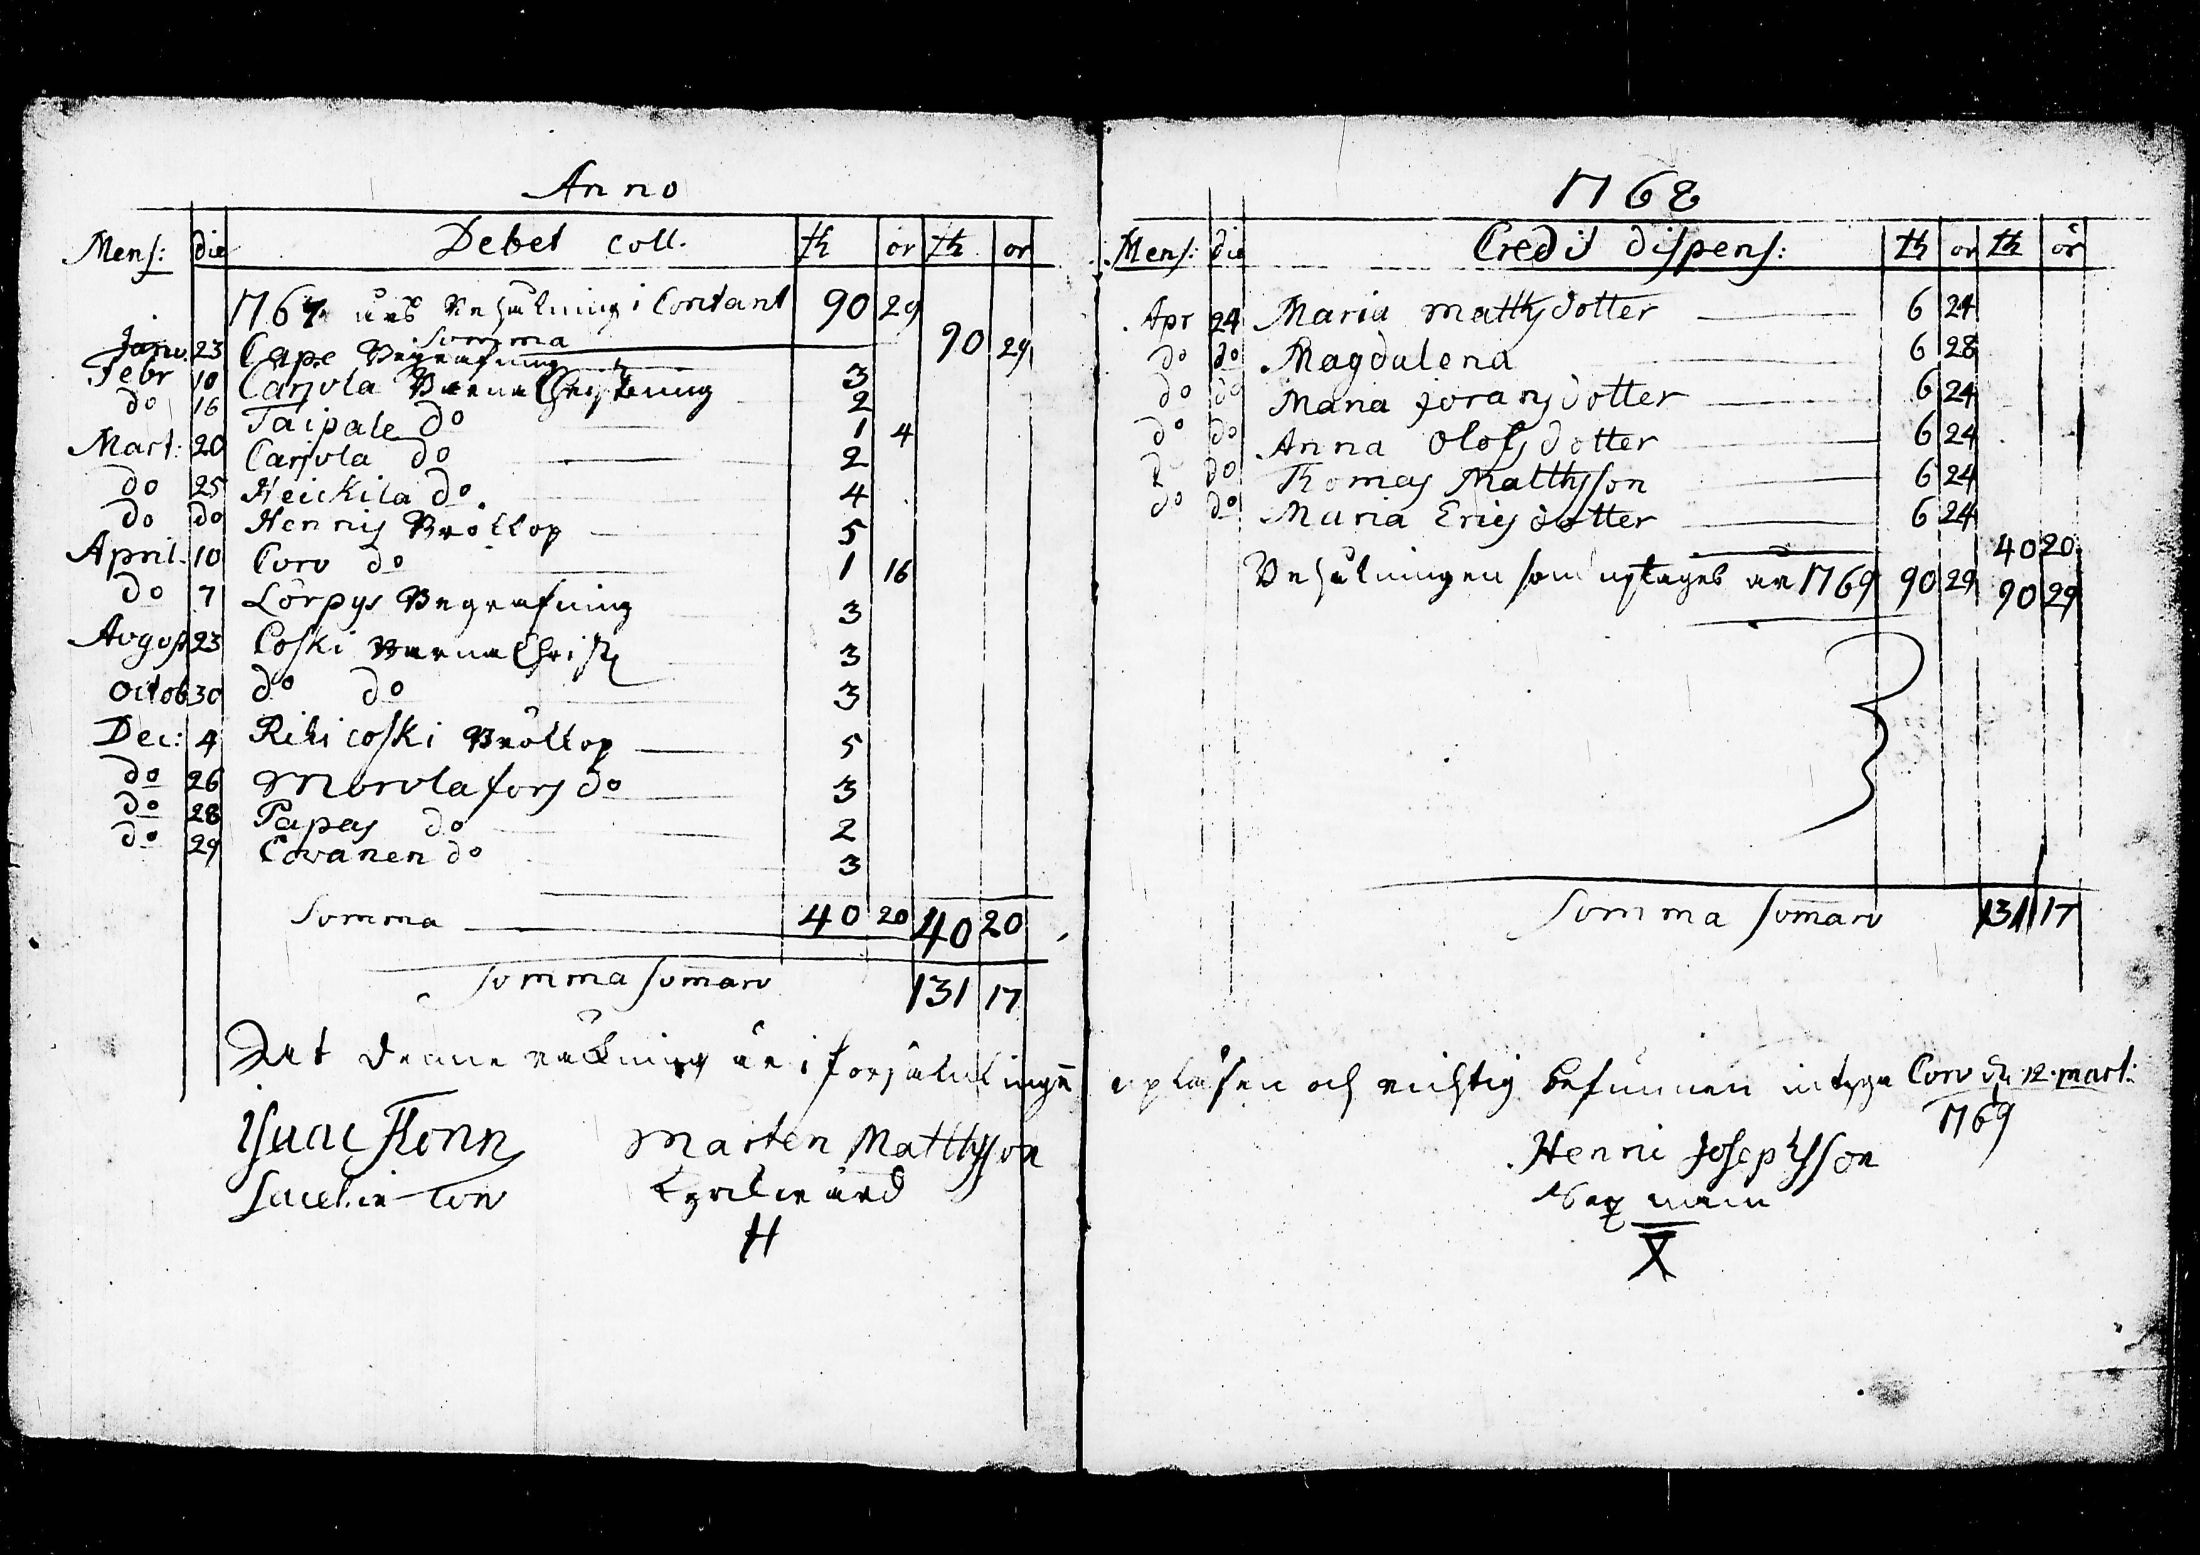 Anno
Mens: die Debet coll. th or th or
1767 års Behålning i Contant 90 29
Somma 90 29
Janu. 23 Cape Begrafning 3
Febr 10 Carjola Barna Christning 2
do 16 Taipale do 1 4
Mart: 20 Carjola do 2
do 25 Heickila do 4
do do Hennis Bröllop 5
April 10 Coro do 1 16
do 7 Lörpys Begrafning 3
Avgost 23 Coski Barna Christ
3
Octob 30 do do 3
Dec: 4 Rihicoski Bröllop 5
do 26 Morola fors do 3
do 28 Papas do 2
do 29 Covanen do 3
Somma 40 20 40 20
Somma Somaro 131 17
Det denne räckning är i forsamlingen
Isaac Flonn Marten Matthsson
Kyrckiovärd
H
1768
Mens: die Credit dispens: th or th ör
Apr 24 Maria Matths dotter 6 24
do do Magdalena 6 28
do do Maria Jörans dotter 6 24
do do Anna Olofs dotter 6 24
do do Thomas Matthsson 6 24
do do Maria Erics dotter 6 24
40 20
Behålningen som uptages år 1769 90 29 90 29
Somma Somaro 131 17
upläsen och richtig befunnen intyga Coro dn 12. mart:
1769
Henric Josephsson
Sex man
X